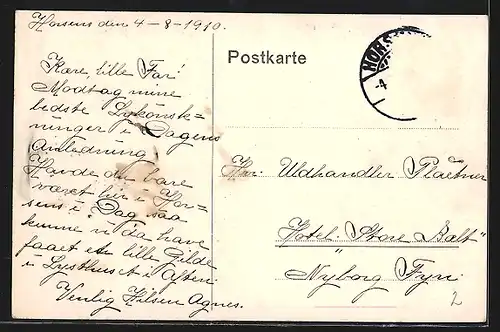 Horsens den 4-8-1910.
Kære lille Far!
Modtag mine
bedste Lykønsk=
ninger i Dagens
Anledning
Havde du bare
været her i Hor=
sens i Dag, saa
kunne vi da have
faaet et lille Gilde
i Lysthuset i Aften.
Venlig Hilsen Agnes.
Postkarte
HORS
-4
Hr. Uldhandler Plaetner
Hotel "Store Bælt"
Nyborg Fyn.
2